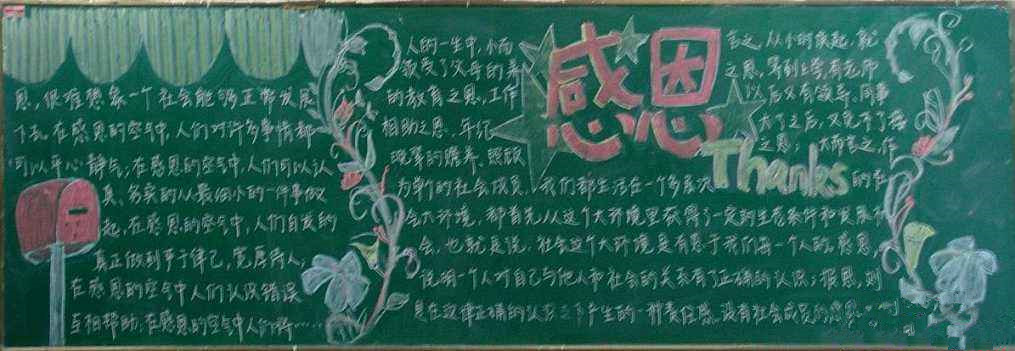 感恩
Thanks
人的一生中,小而言之,从小时候起,就
领受了父母的养之恩,等到上学,有老师
的教育之恩,工作以后又有领导、同事
相助之恩,年纪大了之后,又免不了
晚辈的赡养、照顾之恩;大而言之,作
为单的社会成员,我们都生活在一个多层次的
会大环境,都首先从这个大环境里获得了一定的生存条件和发展
会,也就是说,社会这个大环境是有恩于我们每一个人的。感恩
说明一个人对自己与他人和社会的关系有了正确的认识;报恩,则
是在这种正确的认识之下产生的一种责任感。没有社会成员的感恩
恩,很难想象一个社会能够正常发展
下去。在感恩的空气中,人们对许多事情都
可以平心静气;在感恩的空气中,人们可以认
真、务实的从最细小的一件事做
起;在感恩的空气中,人们自发的
真正做到严于律己,宽厚待人;
在感恩的空气中人们认识错误
互相帮助;在感恩的空气中人们将……